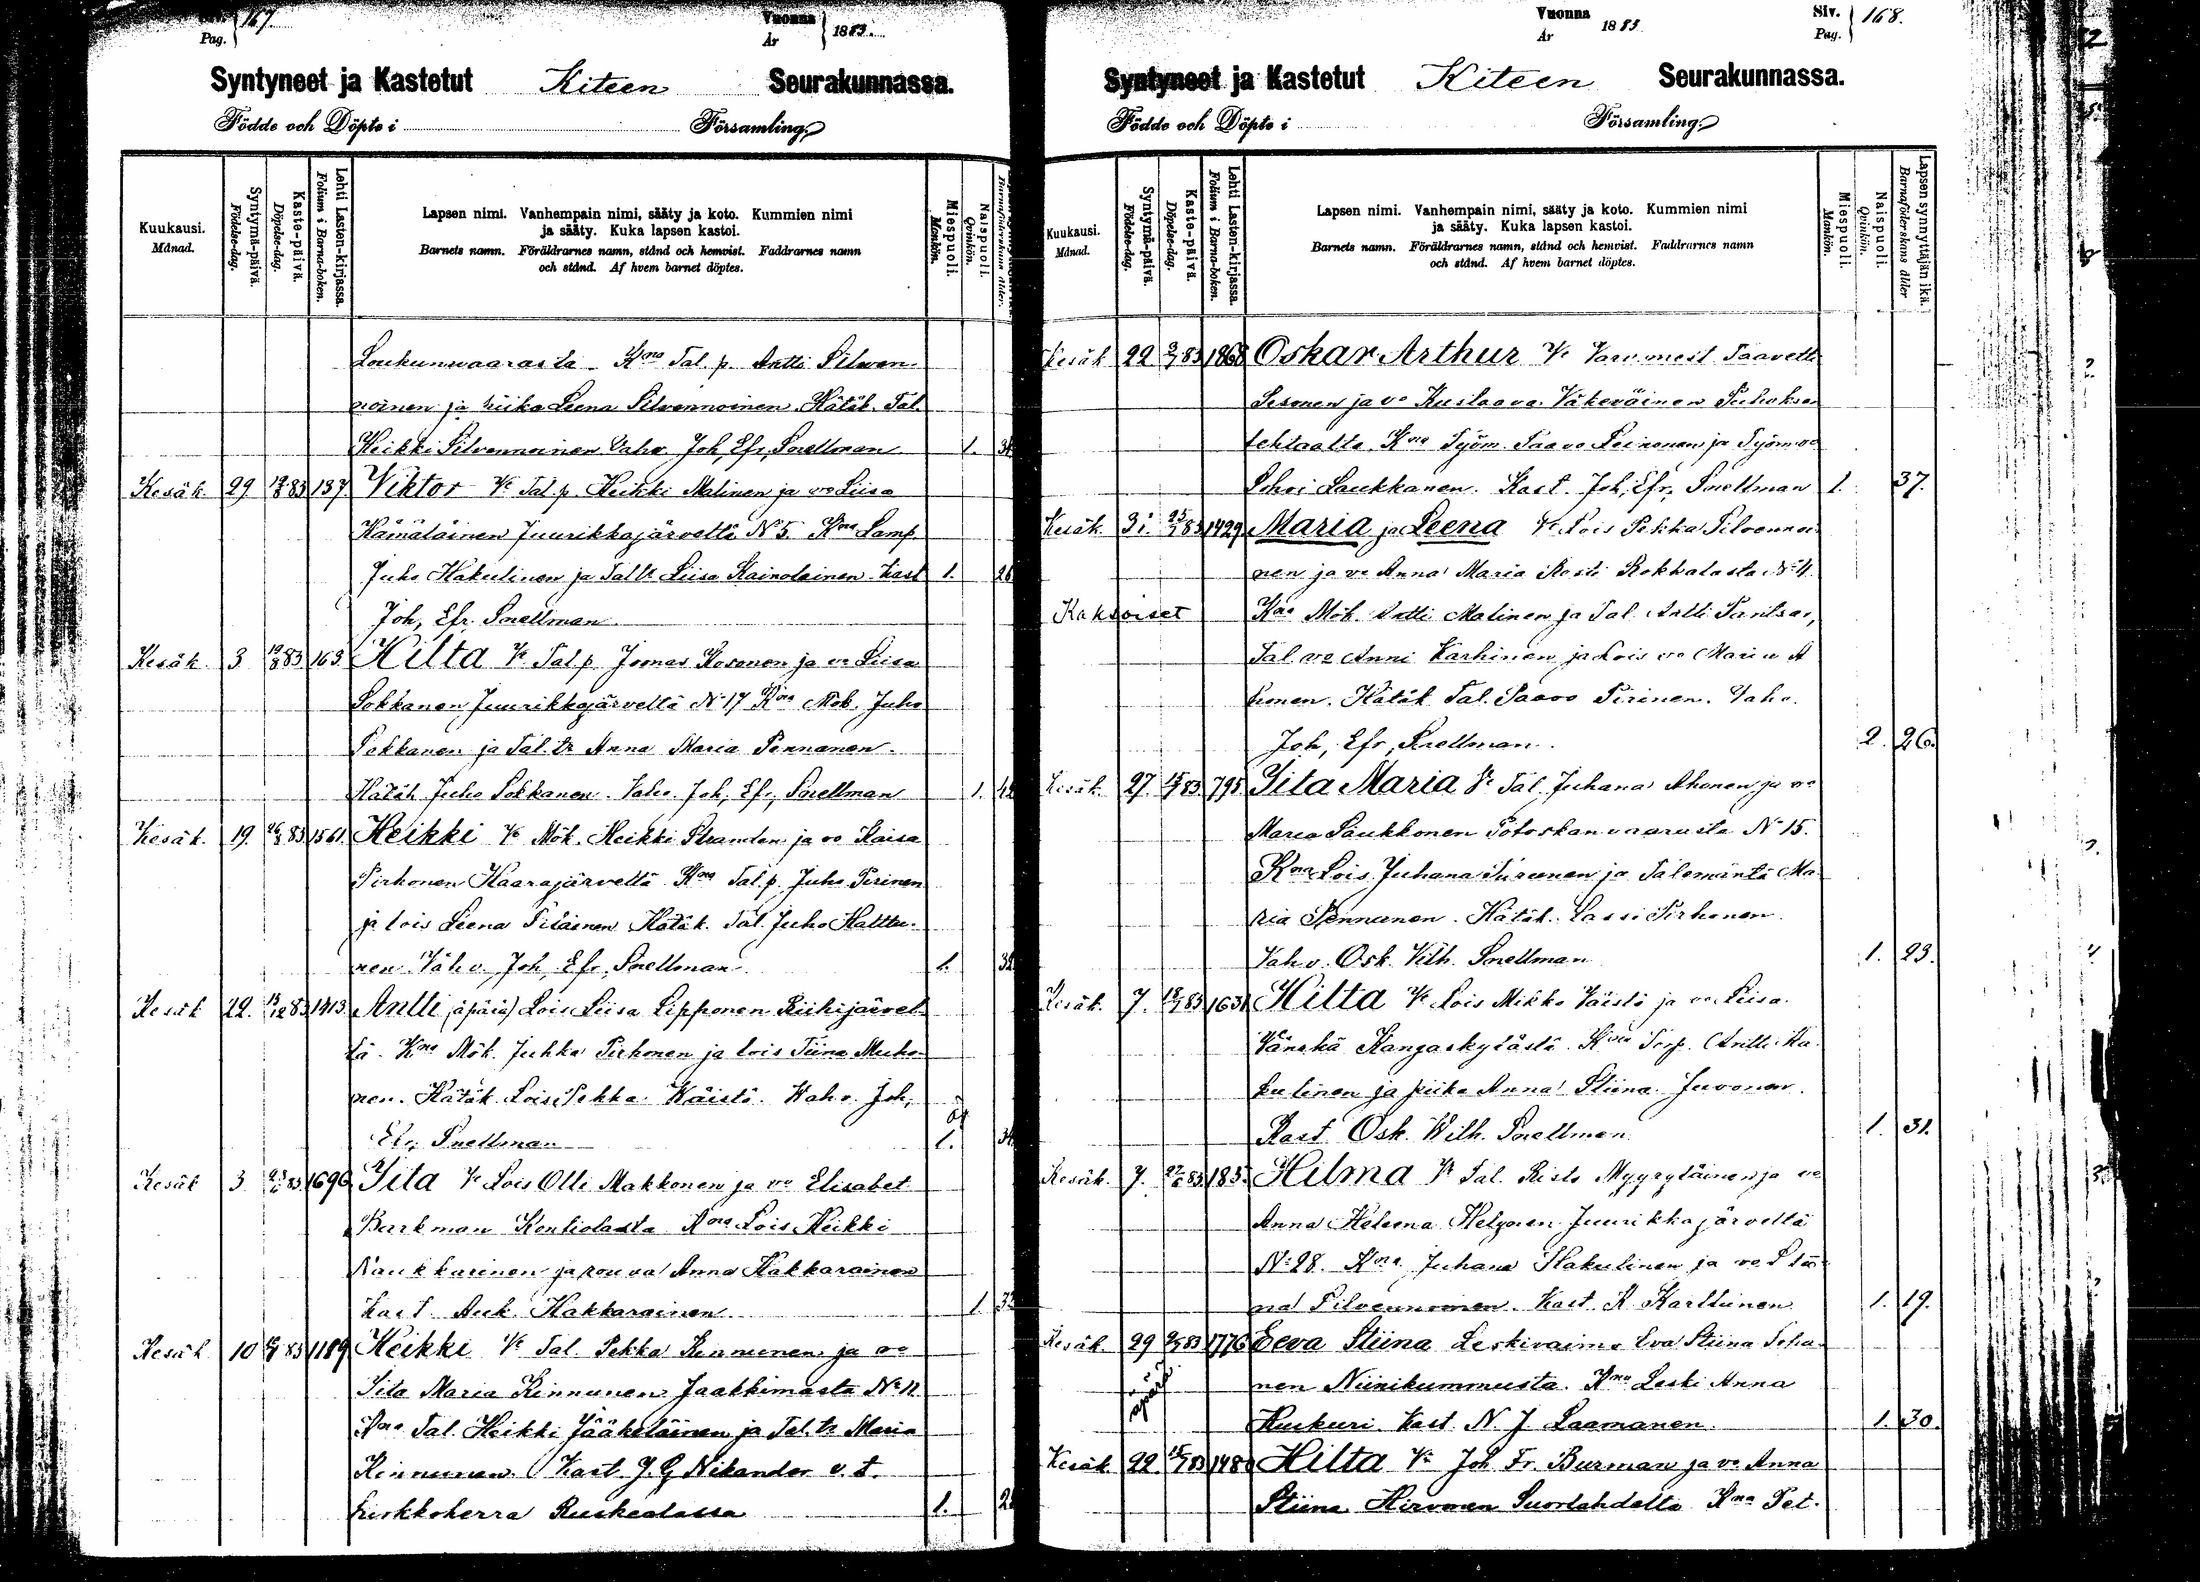 Pag. 167.
Vuonna
År 1883.
Syntyneet ja Kastetut Kiteen Seurakunnassa.
Födde och Döpte i Församling.
Kuukausi.
Månad.
Syntymä-päivä.
Födelse-dag.
Kaste-päivä.
Döpelse-dag.
Lehti Lasten-kirjassa.
Folium i Barna-boken.
Lapsen nimi. Vanhempain nimi, sääty ja koto. Kummien nimi
ja sääty. Kuka lapsen kastoi.
Barnets namn. Föräldrarnes namn, stånd och hemvist. Faddrarnes namn
och stånd. Af hvem barnet döptes.
Miespuoli.
Mankön.
Naispuoli.
Qvinkön.
Loukunvaarasta. Kna Tal. p. Antti Silven-
noinen ja piika Leena Silvennoinen. Hätäk. Tal.
Heikki Silvennoinen. Vahv. Joh. Efr. Snellman 1.
Kesäk. 29 83 137 Viktor Vt Tal. p. Heikki Malinen ja vo Liisa
Hämäläinen Juurikkajärveltä No 5. Kna Lamp.
Juho Hakulinen ja Tal. tr Liisa Kainolainen. Kast. 1. 26
Joh. Efr. Snellman
Kesäk. 3 83 163 Hilta Vt Tal. p. Joonas Kosonen ja vo Liisa
Sokkanen, Juurikkajärveltä No 17 Kna Mök. Juho
Pakkanen ja Tal. tr Anna Maria Pennanen.
Hätäk. Juho Sokkanen. Vahv. Joh. Efr. Snellman 1.
Kesäk. 19. 83 1561. Heikki Vt Mök. Heikki Strandén ja vo Kaisa
Pirhonen Haarajärveltä Kna Tal. p. Juho Pirinen
ja lois Leena Piiläinen Hätäk. Tal. Juho Halttu-
nen. Vahv. Joh. Efr. Snellman 1.
Kesäk. 22. 83 1413 Antti (äpärä) Lois Liisa Lipponen Riihijärvel-
tä. Kna Mök. Juhka Pirhonen ja lois Tiina Muho-
nen. Hätäk. Lois Pekka Väistö. Wahv. Joh.
Efr. Snellman 1.
Kesäk. 3 83 1690 Iita Vt Lois Olli Makkonen ja vo Elisabet
Barkman Kontiolasta Kna Lois Heikki
Naukkarinen ja rouva Anna Hakkarainen
Kast. Auk. Hakkarainen 1
Kesäk. 10 83 1189 Heikki Vt Tal. Pekka Kinnunen ja vo
Iita Maria Kinnunen Jaakkimasta No 12
Kna Tal. Heikki Jääkeläinen ja Tal. tr Maria
Kinnunen. Kast. J. G. Nikander v. t.
kirkkoherra Ruskealassa 1.
Vuonna
År 1883
Siv.
Pag. 168.
Syntyneet ja Kastetut Kiteen Seurakunnassa.
Födde och Döpte i Församling.
Kuukausi.
Månad.
Syntymä-päivä.
Födelse-dag.
Kaste-päivä.
Döpelse-dag.
Lehti Lasten-kirjassa.
Folium i Barna-boken.
Lapsen nimi. Vanhempain nimi, sääty ja koto. Kummien nimi
ja sääty. Kuka lapsen kastoi.
Barnets namn. Föräldrarnes namn, stånd och hemvist. Faddrarnes namn
och stånd. Af hvem barnet döptes.
Miespuoli.
Mankön.
Naispuoli.
Qvinkön.
Lapsen synnyttäjän ikä.
Barnaföderskans ålder
Kesäk 22 83 1868 Oskar Arthur Vt Taavetti
Sesonen ja vo Kustaava Väkeväinen Puhoksen
tehtaalta. Kna Työm. Paavo Leinonen ja Työm. vo
Sohvi Laukkanen. Kast. Joh. Efr. Snellman 1. 37.
Kesäk. 3. 83 1429 Maria ja Leena Vt Lois Pekka Silvennoi-
nen ja vo Anna Maria Rosti Rokkalasta No 4.
Kaksoiset Kna Mök. Antti Malinen ja Tal. Antti Pantsar,
Tal. vo Anni Karhinen, ja Lois vo Maria A
honen. Hätäk Tal. Paavo Pirinen. Vahv.
Joh. Efr. Snellman. 2. 26.
Kesäk. 27. 83 795 Iita Maria Vt Tal. Juhana Ahonen ja vo
Maria Saukkonen Potoskanvaarasta No 15.
Kna Lois Juhana Turunen ja Talemäntä Ma-
ria Pennunen. Hätäk. Lassi Pirhonen.
Vahv. Osk. Vilh. Snellman 1. 23.
Kesäk. 7. 83 1631 Hilta Vt Lois Mikko Väistö ja vo Liisa
Vänskä Kangaskylästä. Kna Torp. Antti Ha-
kulinen ja piika Anna Stiina Juvonen.
Kast. Osk. Wilh. Snellman. 1. 31.
Kesäk. 7. 83 185 Hilma Vt Tal. Risto Myyryläinen ja vo
Anna Helena Holponen Juurikkajärveltä
No 28. Kna Juhana Hakulinen ja vo Stii-
na Silvennoinen. Kast. K. Karttunen 1. 19.
Kesäk 29 83 1776 Eeva Stiina Leskivaimo Eva Stiina Toha-
äpärä nen Niinikummusta. Kna Leski Anna
Kukuri. Kast. N. J. Laamanen. 1. 30.
Kesäk. 22. 83 148 Hilta Vt Joh. Fr. Burman ja vo Anna
Stiina Hirvonen Suorlahdelta Kna Pet.